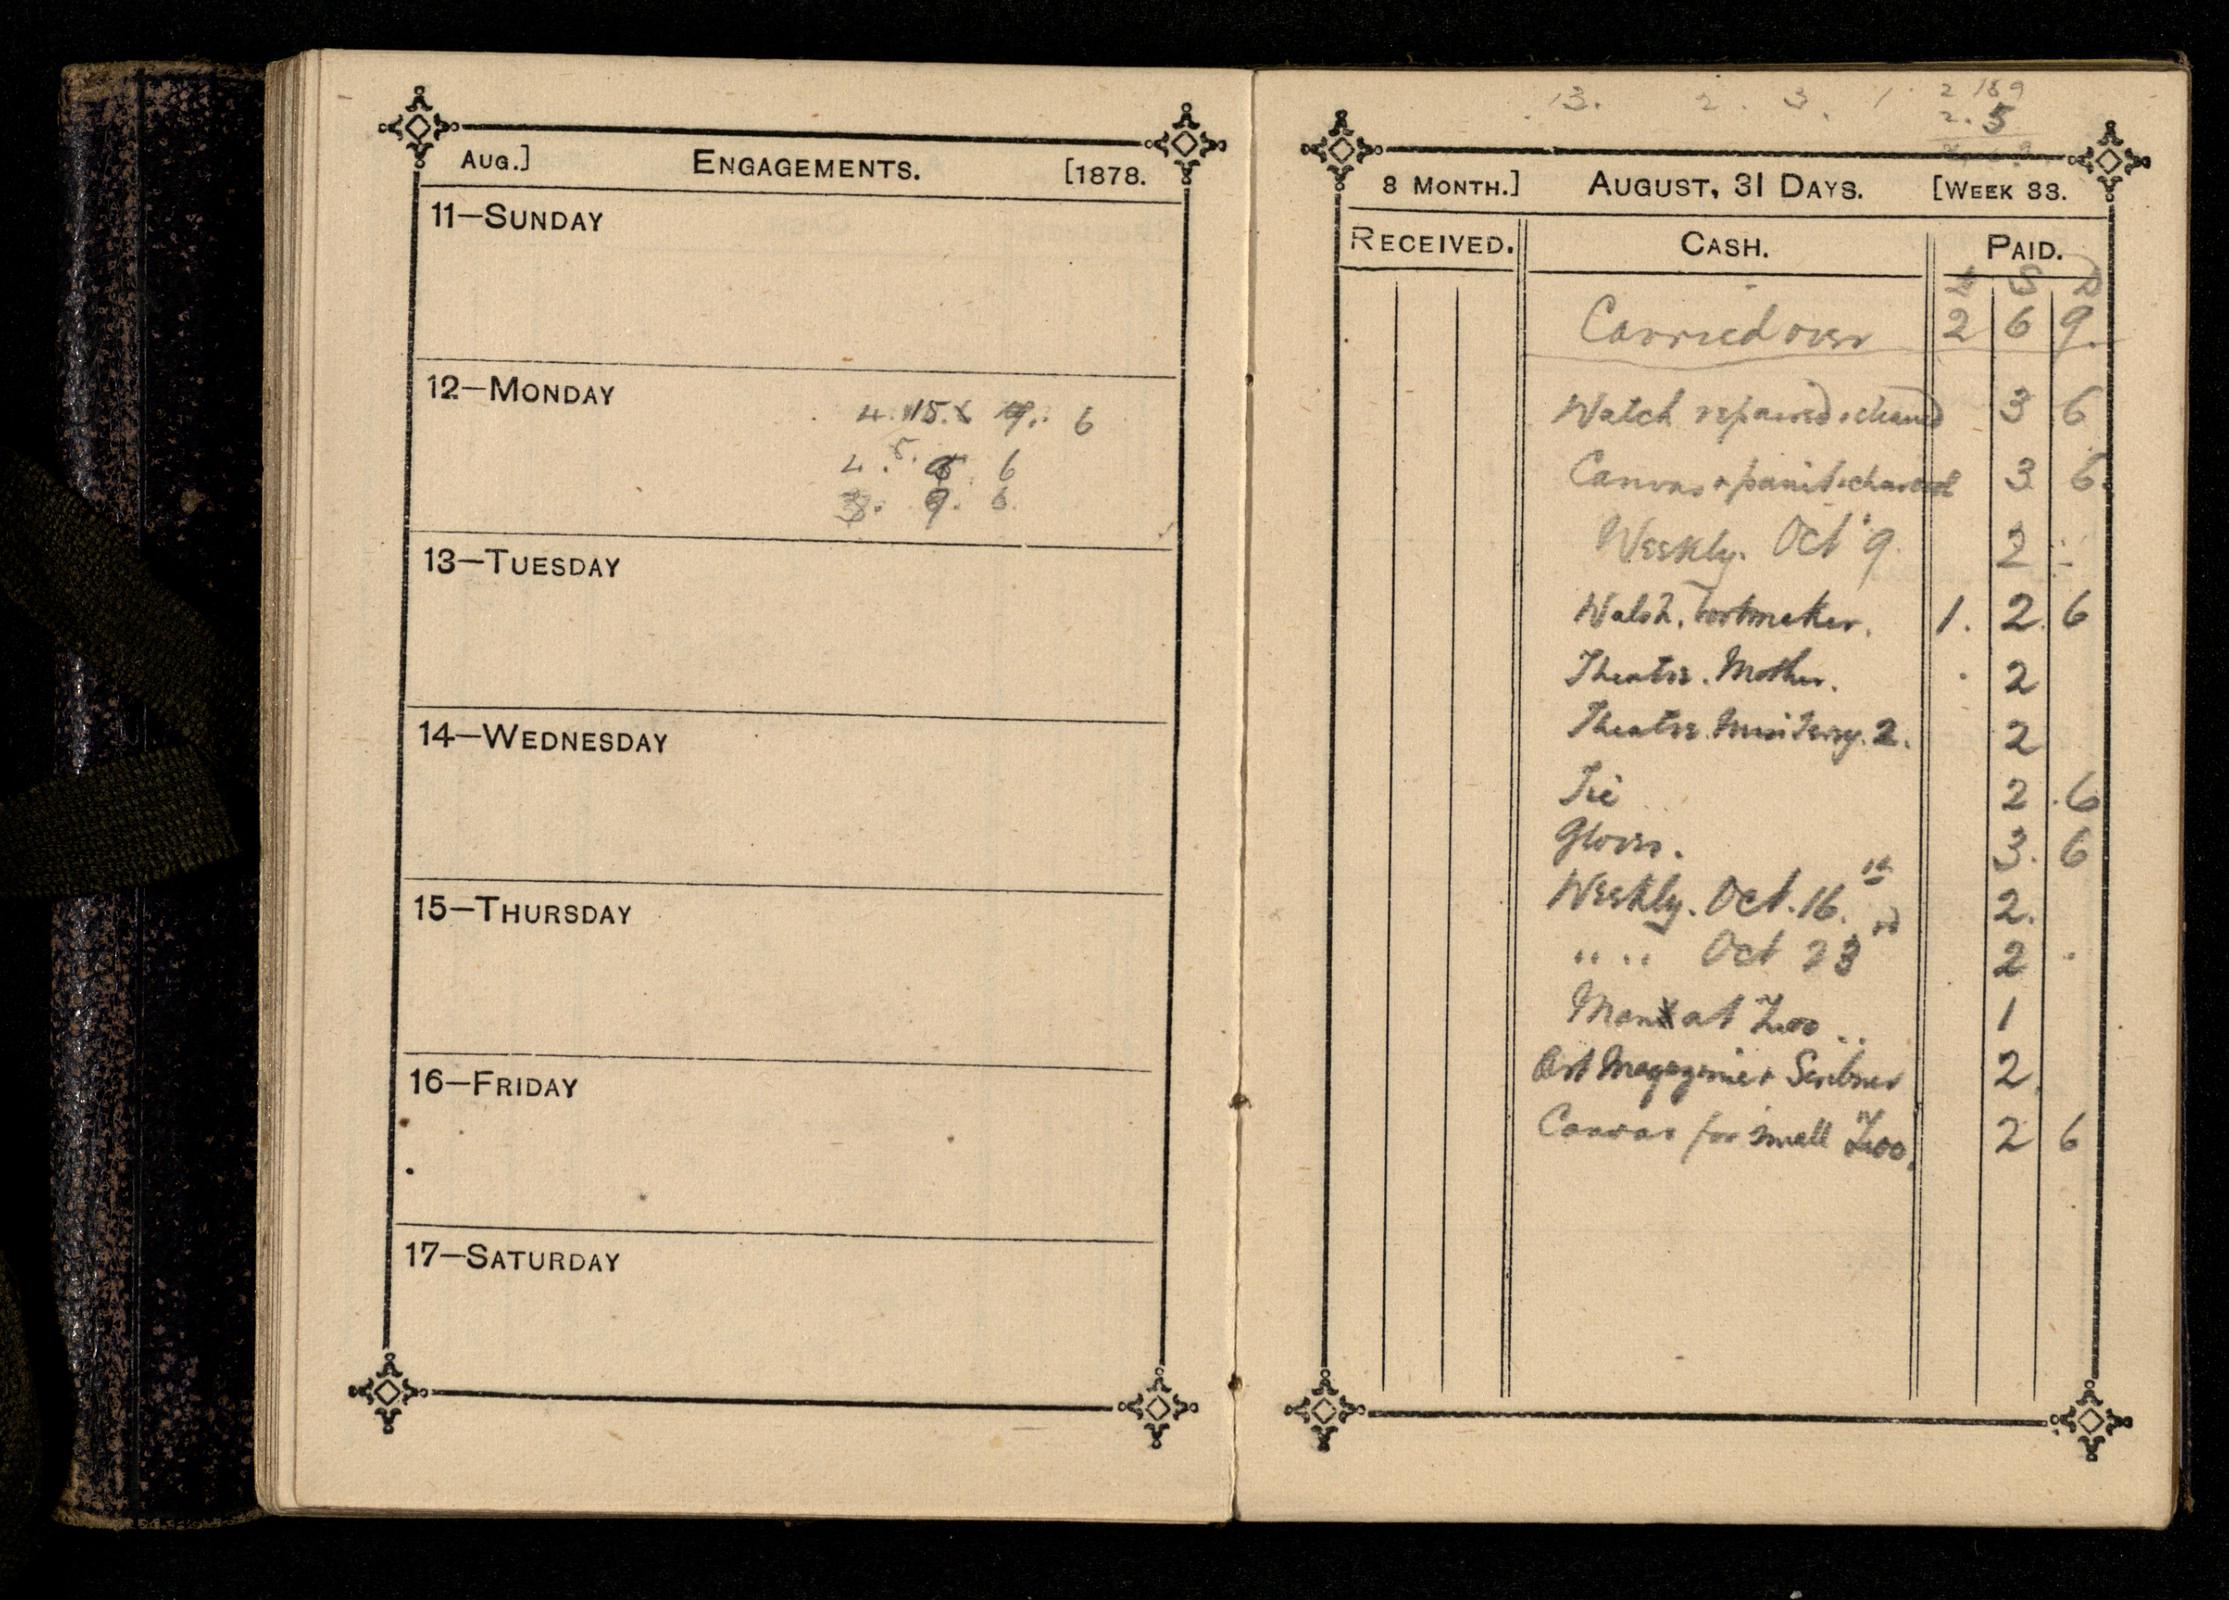 AUG.] ENGAGEMENTS. [1878.
11—SUNDAY
12—MONDAY
6
4. 5. 6
9. 6.
13—TUESDAY
14—WEDNESDAY
15—THURSDAY
16—FRIDAY
17—SATURDAY
13. 2. 3. 1.
2. 5
8 MONTH.] AUGUST, 31 DAYS. [WEEK 33.
RECEIVED. CASH. PAID.
£ S D
Carried over 2 6 9.
Watch repaired & cleaned 3 6
Canvas & paint & charcoal 3 6.
Weekly. Oct 9. 2 -
Walsh. bootmaker. 1. 2. 6
Theatre. Mother. 2
Theatre. Miss Terry. 2. 2
Tie 2. 6
Gloves. 3. 6
Weekly. Oct. 16th 2.
" " Oct 23rd 2
Man at Zoo .. 1
Art Magazine & Scribner 2.
Canvas for small Zoo. 2 6